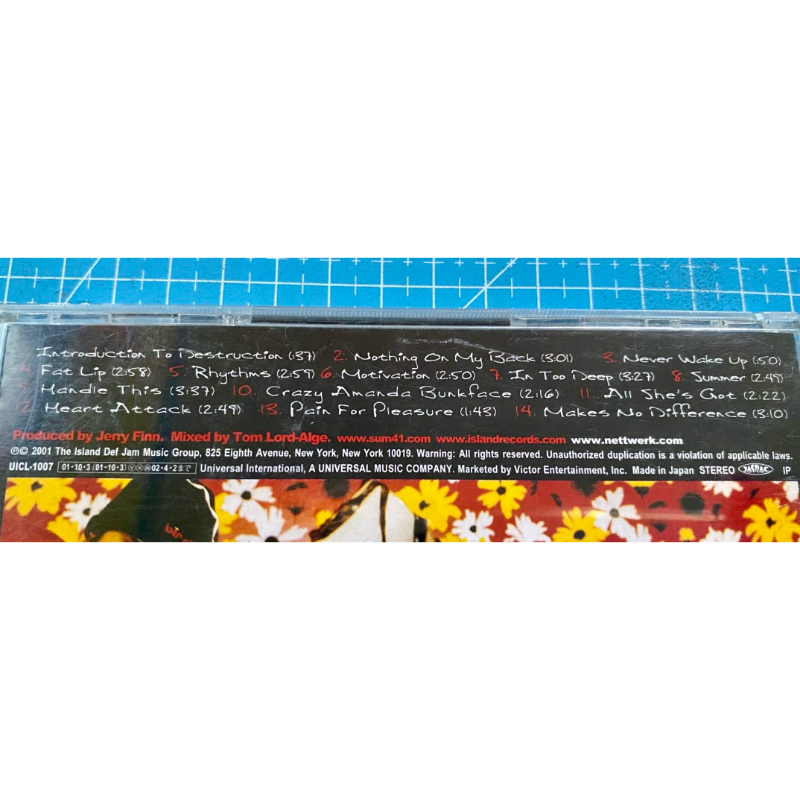 Introduction To Destruction (1:37) 2. Nothing On My Back (3:01) 3. Never Wake Up (:50)
4. Fat Lip (2:58) 5. Rhythms (2:59) 6. Motivation (2:50) 7. In Too Deep (3:27) 8. Summer (2:49)
Handle This (3:37) 10. Crazy Amanda Bunkface (2:16) 11. All She's Got (2:22)
2. Heart Attack (2:49) 13. Pain For Pleasure (1:43) 14. Makes No Difference (3:10)
Produced by Jerry Finn. Mixed by Tom Lord-Alge. www.sum41.com www.islandrecords.com www.nettwerk.com
℗© 2001 The Island Def Jam Music Group, 825 Eighth Avenue, New York, New York 10019. Warning: All rights reserved. Unauthorized duplication is a violation of applicable laws.
UICL-1007 01・10・3 (01・10・3) 02・4・2まで Universal International, A UNIVERSAL MUSIC COMPANY. Marketed by Victor Entertainment, Inc. Made in Japan STEREO JASRAC IP